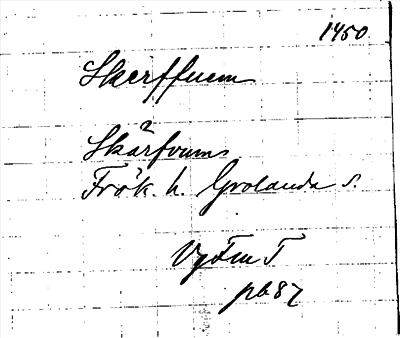 1450.
Skerffuem
?
Skärfvums
Frök. h. Grolanda s.
VgFmT
pb 87